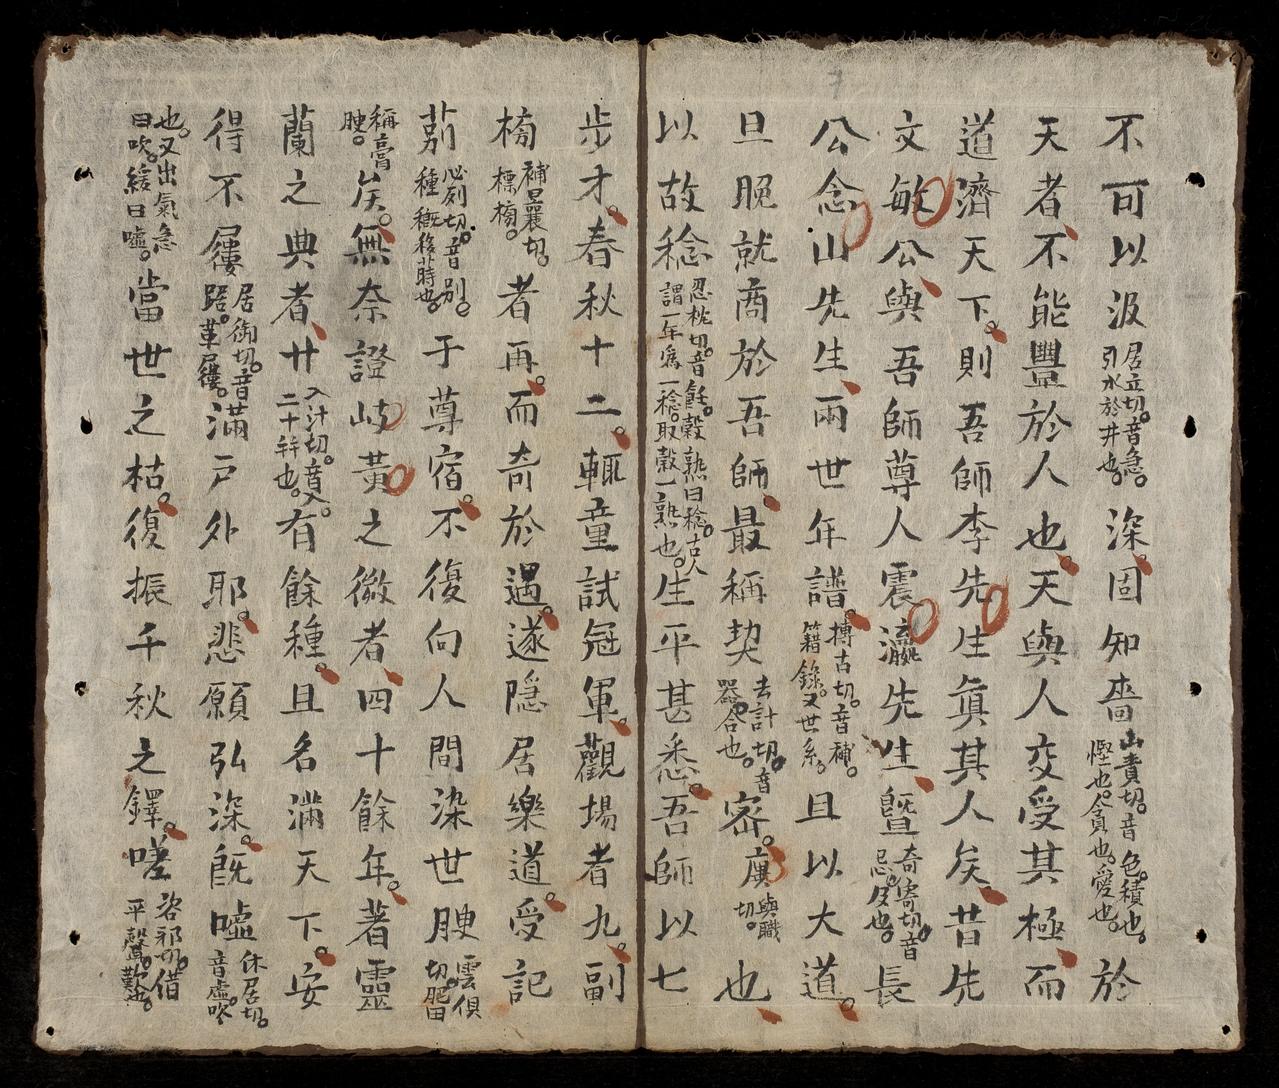 不可以汲居立切。音急。引水於井也。深。固知嗇山責切。音色。積也。慳也。貪也。愛也。於
天者、不能豐於人也。天與人交受其極、而
道濟天下。則吾師李先生眞其人矣。昔先
文敏公、與吾師尊人震瀛先生、曁奇寄切。音忌。及也。長
公念山先生、兩世年譜。博古切。音補。籍錄。又世系。且以大道。
旦晚就商於吾師、最稱契去計切。音器。合也。密。廣與職切。也、
以故稔忍枕切。音飪。穀熟曰稔。古人謂一年爲一稔。取穀一熟也。生平甚悉。吾師以七
步才。春秋十二。輒童試冠軍。觀場者九。副
榜補曩切。標榜。者再。而奇於遇。遂隱居樂道。受記
莂必列切。音別。種概移蒔也。于尊宿。不復向人間染世腴雲俱切。肥
腴。稱膏矣。無奈證岐黃之微者、四十餘年。著靈
蘭之典者、廿入汁切。音入。二十幷也。有餘種。且名滿天下。安
得不屨居御切。音踞。革屨。滿戶外耶。悲願弘深。旣噓休居切。音虛。吹
也。又出氣急曰吹。緩曰噓。當世之枯。復振千秋之鐸。嗟咨邪切。借平聲。歎